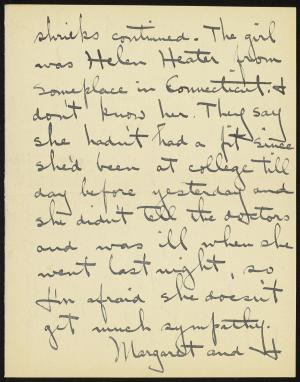 shrieks continued. The girl
was Helen Heater from
someplace in Connecticut. I
don't know her. They say
she hadn't had a fit since
she'd been at college till
day before yesterday and
she didn't tell the doctors
and was ill when she
went last night, so
I'm afraid she doesn't
get much sympathy.
Margaret and I